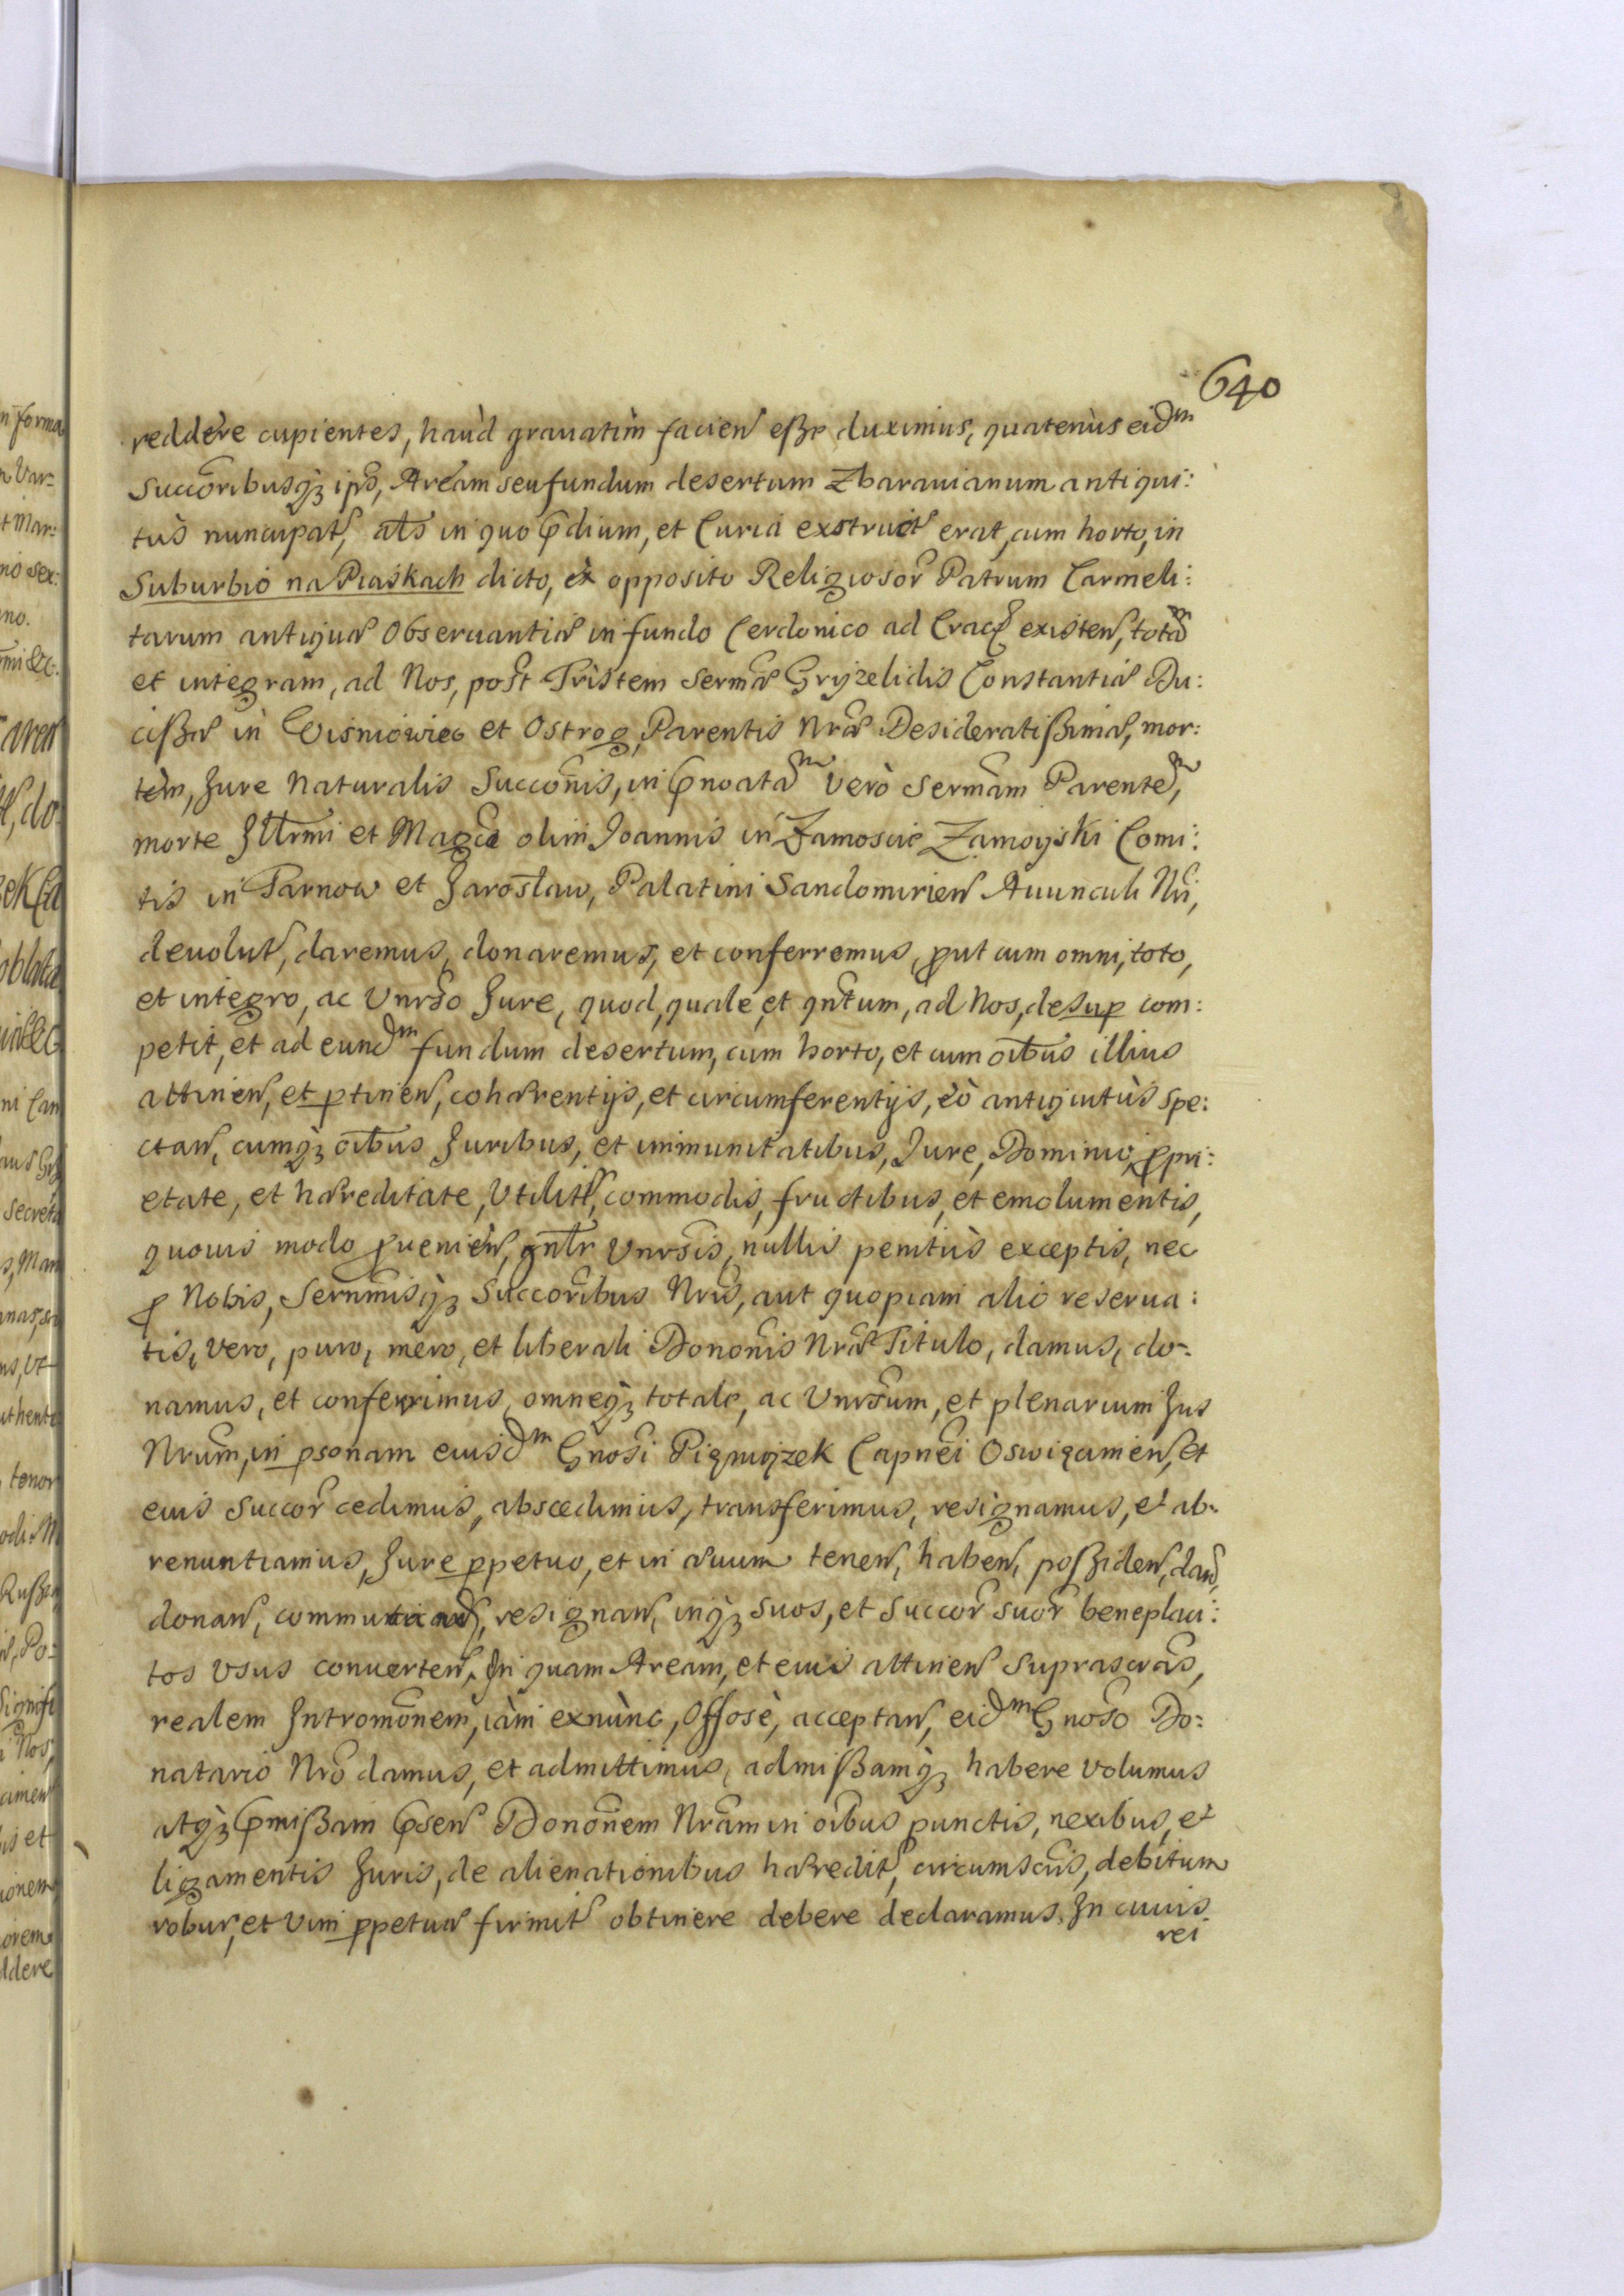 640
reddere cupientes, haùd grauatim facien̄ eße duximus, quatenùs eid͞m
Succoribusq̀ʒ ips̄, Aream seu fundum desertum Zbarauianum antiqui:
tùs nuncupat̄, al͞s in quo p̄dium, et Curia exstruct̄ erat, cum horto, in
Suburbio na Piaskach dicto, ex opposito Religiosor̄ Patrum Carmeli:
tarum antiquæ Obseruantiæ in fundo Cerdonico ad Crac̄ existen̄, totam̄
et integram, ad Nos, post Tristem Sermæ Gryzelidis Constantiæ Du:
cißæ in Wisniowiec et Ostrog, Parentis Nræ Desideratißimæ, mor:
tem, Jure Naturalis Succonis, in p̄noatam̄ verò Sermam Parentem̄,
morte Jllrmi et Magci olim Joannis in Zamoscie Zamoyski Comi:
tis in Tarnow et Jarosław, Palatini Sandomirien̄ Auunculi Nri,
deuolut̄, daremus, donaremus, et conferremus, ꝓut cum omni, toto,
et integro, ac Vnrso Jure, quod, quale, et qntum, ad Nos, desup com:
petit, et ad eund͞m fundum desertum, cum horto, et cum oībus illius
attinen̄, et ptinen̄, cohærentijs, et circumferentijs, eò antiquitùs spe:
ctan̄, cumq̀ʒ oībus Juribus, et immunitatibus, Jure, Dominio, ꝓpri:
etate, et hæreditate, Vtilit̄, commodis, fructibus, et emolumentis,
quouis modo ꝓuenien̄, gnl͞r Vnrsis, nullis penitùs exceptis, nec
ꝓ Nobis, Sernmisq̀ʒ Succoribus Nris, aut quopiam alio reserua:
tis, vero, puro, mero, et liberali Dononis Nræ Titulo, damus, do-
namus, et conferrimus, omneq̀ʒ totale, ac Vnrsum, et plenarium Jus
Nrum, in psonam eiusd͞m Gnosi Pigmyzek Capnei Oswigcimen̄, et
eius Succor̄ cedimus, abscedimus, transferimus, resignamus, et ab-
renuntiamus, Jure ppetuo, et in æuum tenen̄, haben̄, poßiden̄, dan̄,
donan̄, commutan̄, resignan̄, inq̀ʒ suos, et Succor̄ suor̄ beneplaci:
tos Vsus conuerten̄. Jn quam Aream, et eius attinen̄ suprascras,
realem Jntromonem, iàm exnùnc, Offosè, acceptan̄, eid͞m Gnoso Do:
natario Nro damus, et admittimus, admißamq̀ʒ habere volumus
atq̀ʒ p̄mißam p̄sen̄ Dononem Nram in oībus punctis, nexibus, et
ligamentis Juris, de alienationibus hæredit̄, circumscris, debitum
robur, et vim ppetuæ firmit̄ obtinere debere declaramus. Jn cuius
rei